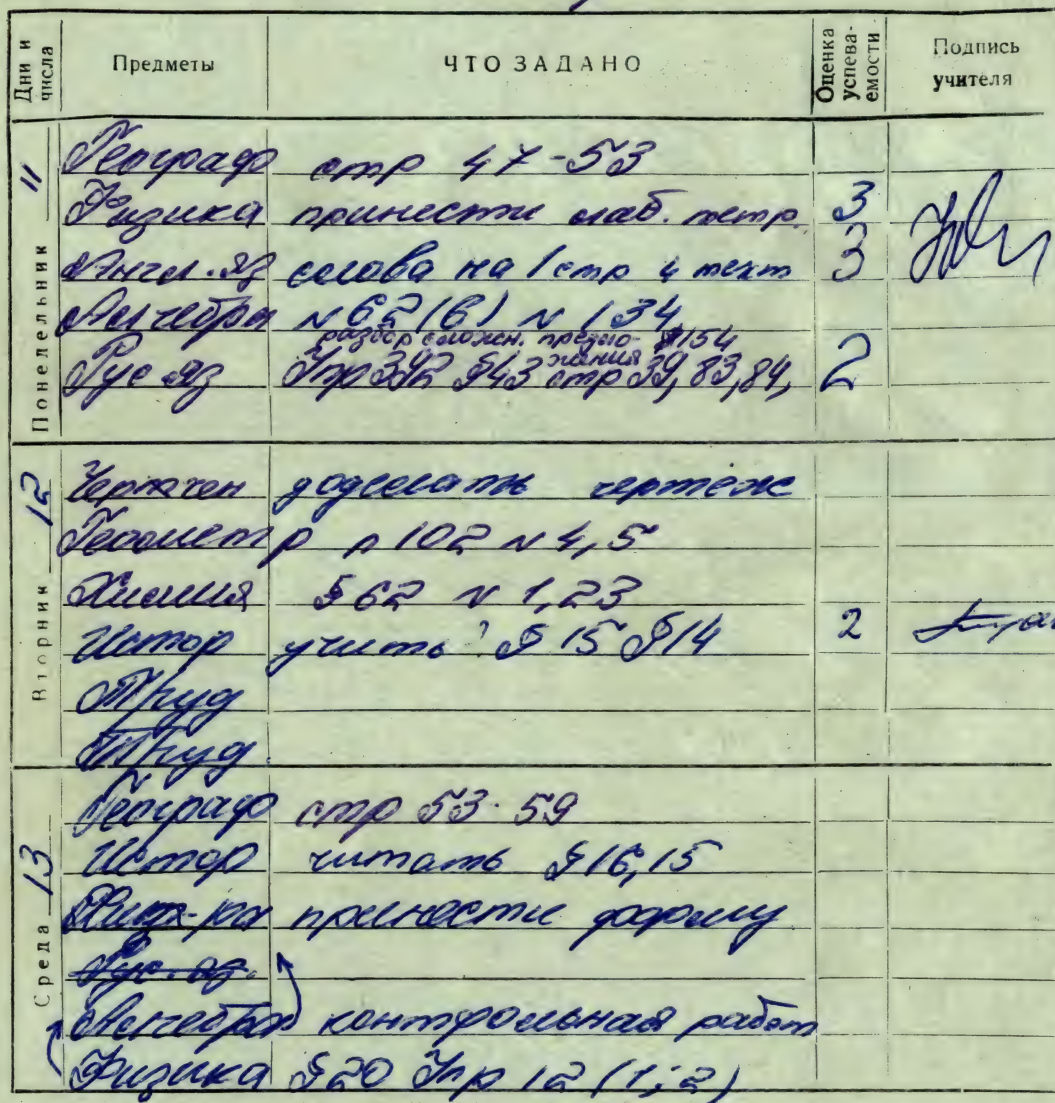 Дни и числа Предметы ЧТО ЗАДАНО Оценка успева- емости Подпись учителя
Понедельник 11
Географ стр 47-53
Физика принести лаб. тетр. 3
Англ. яз слова на 1 стр и текст 3
Алгебра № 62 (б) № 134
разбор сложен. предло- §154
жения
Рус яз Упр 392 §43 стр 39, 83, 84, 2
Вторник 12
Черчен доделать чертёж
Геометр п 102 № 4, 5
Химия § 62 № 1, 23
Истор учить § 15 § 14 2
Труд
Труд
Среда 13
Географ стр 53-59
Истор читать § 16, 15
принести форму
Рус. яз.
Алгебра контрольная работ
Физика § 20 Упр 12 (1; 2)